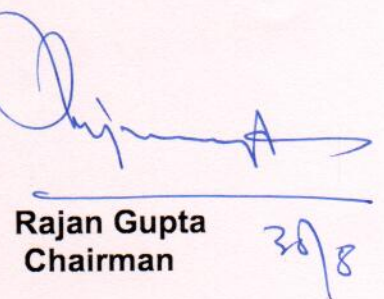 Rajan Gupta
Chairman
30/8